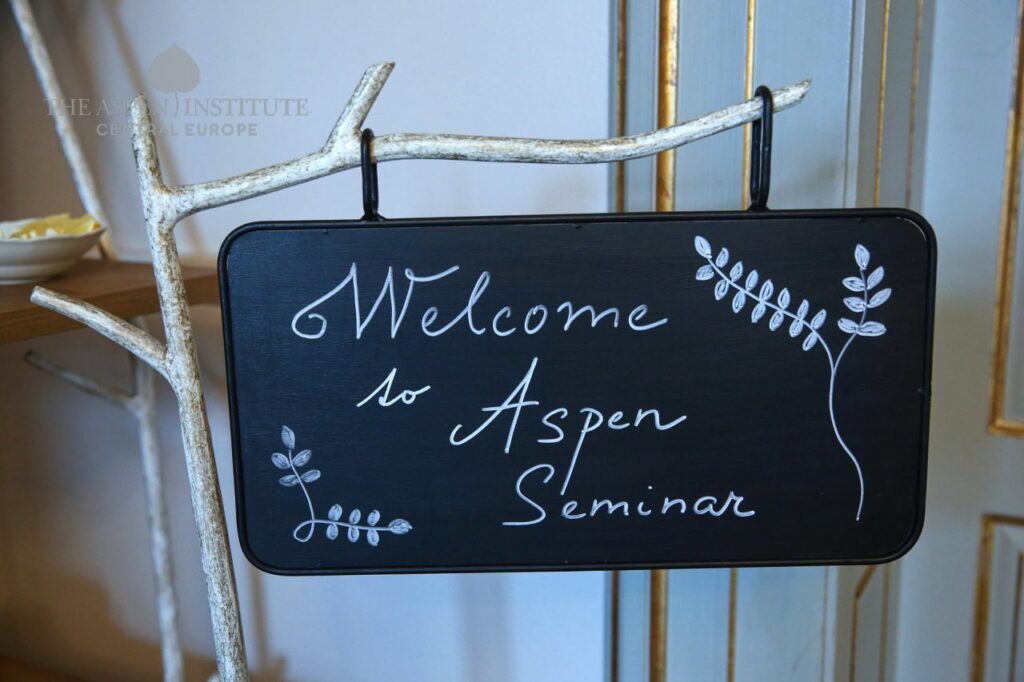 THE ASPEN INSTITUTE
CENTRAL EUROPE
Welcome
to Aspen
Seminar